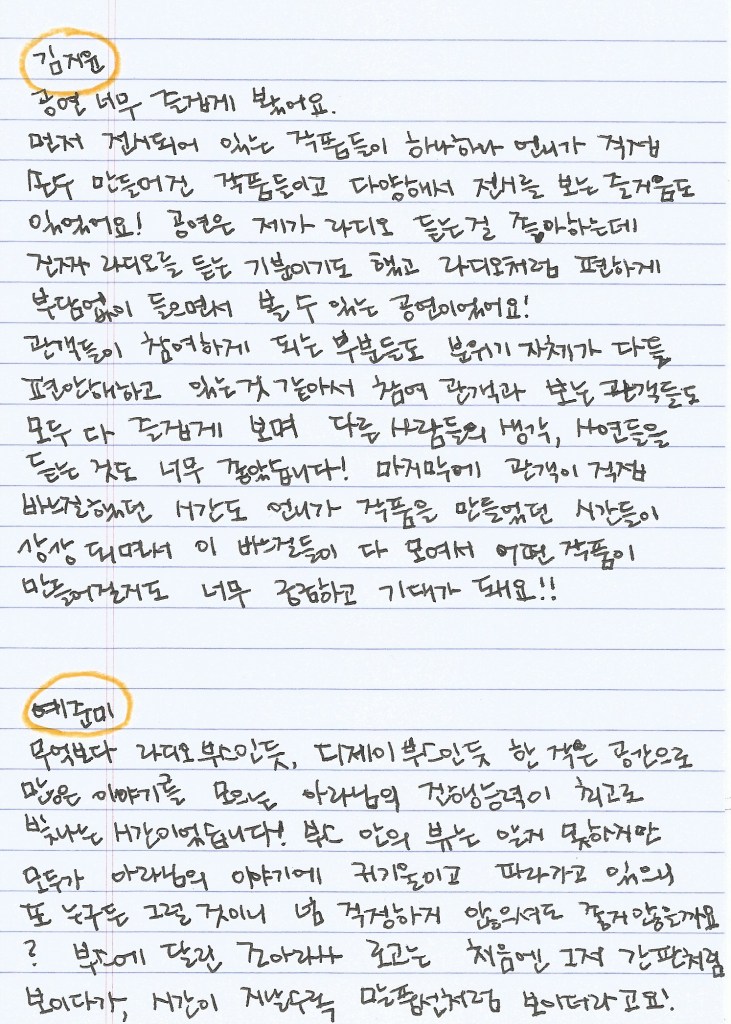 김지윤
공연 너무 즐겁게 봤어요.
먼저 전시되어 있는 작품들이 하나하나 언니가 직접
손수 만들어진 작품들이고 다양해서 전시를 보는 즐거움도
있었어요! 공연은 제가 라디오 듣는걸 좋아하는데
진짜 라디오를 듣는 기분이기도 했고 라디오처럼 편하게
부담없이 들으면서 볼 수 있는 공연이었어요!
관객들이 참여하게 되는 부분들도 분위기 자체가 다들
편안해하고 있는것 같아서 참여 관객과 보는 관객들도
모두 다 즐겁게 보며 다른 사람들의 생각, 사연들을
듣는 것도 너무 좋았습니다! 마지막에 관객이 직접
바느질했던 시간도 언니가 작품을 만들었던 시간들이
상상 되면서 이 바느질들이 다 모여서 어떤 작품이
만들어질지도 너무 궁금하고 기대가 돼요!!
예준미
무엇보다 라디오 부스인듯, 디제이 부스인듯 한 작은 공간으로
많은 이야기를 모으는 아라님의 진행능력이 최고로
빛나는 시간이었습니다! 부스 안의 뷰는 알지 못하지만
모두가 아라님의 이야기에 귀기울이고 따라가고 있으니
또 누구든 그럴 것이니 넘 걱정하지 않으셔도 좋지 않을까요
? 부스에 달린 조아라 로고는 처음에 그저 간판처럼
보이다가, 시간이 지날수록 말풍선처럼 보이더라고요!